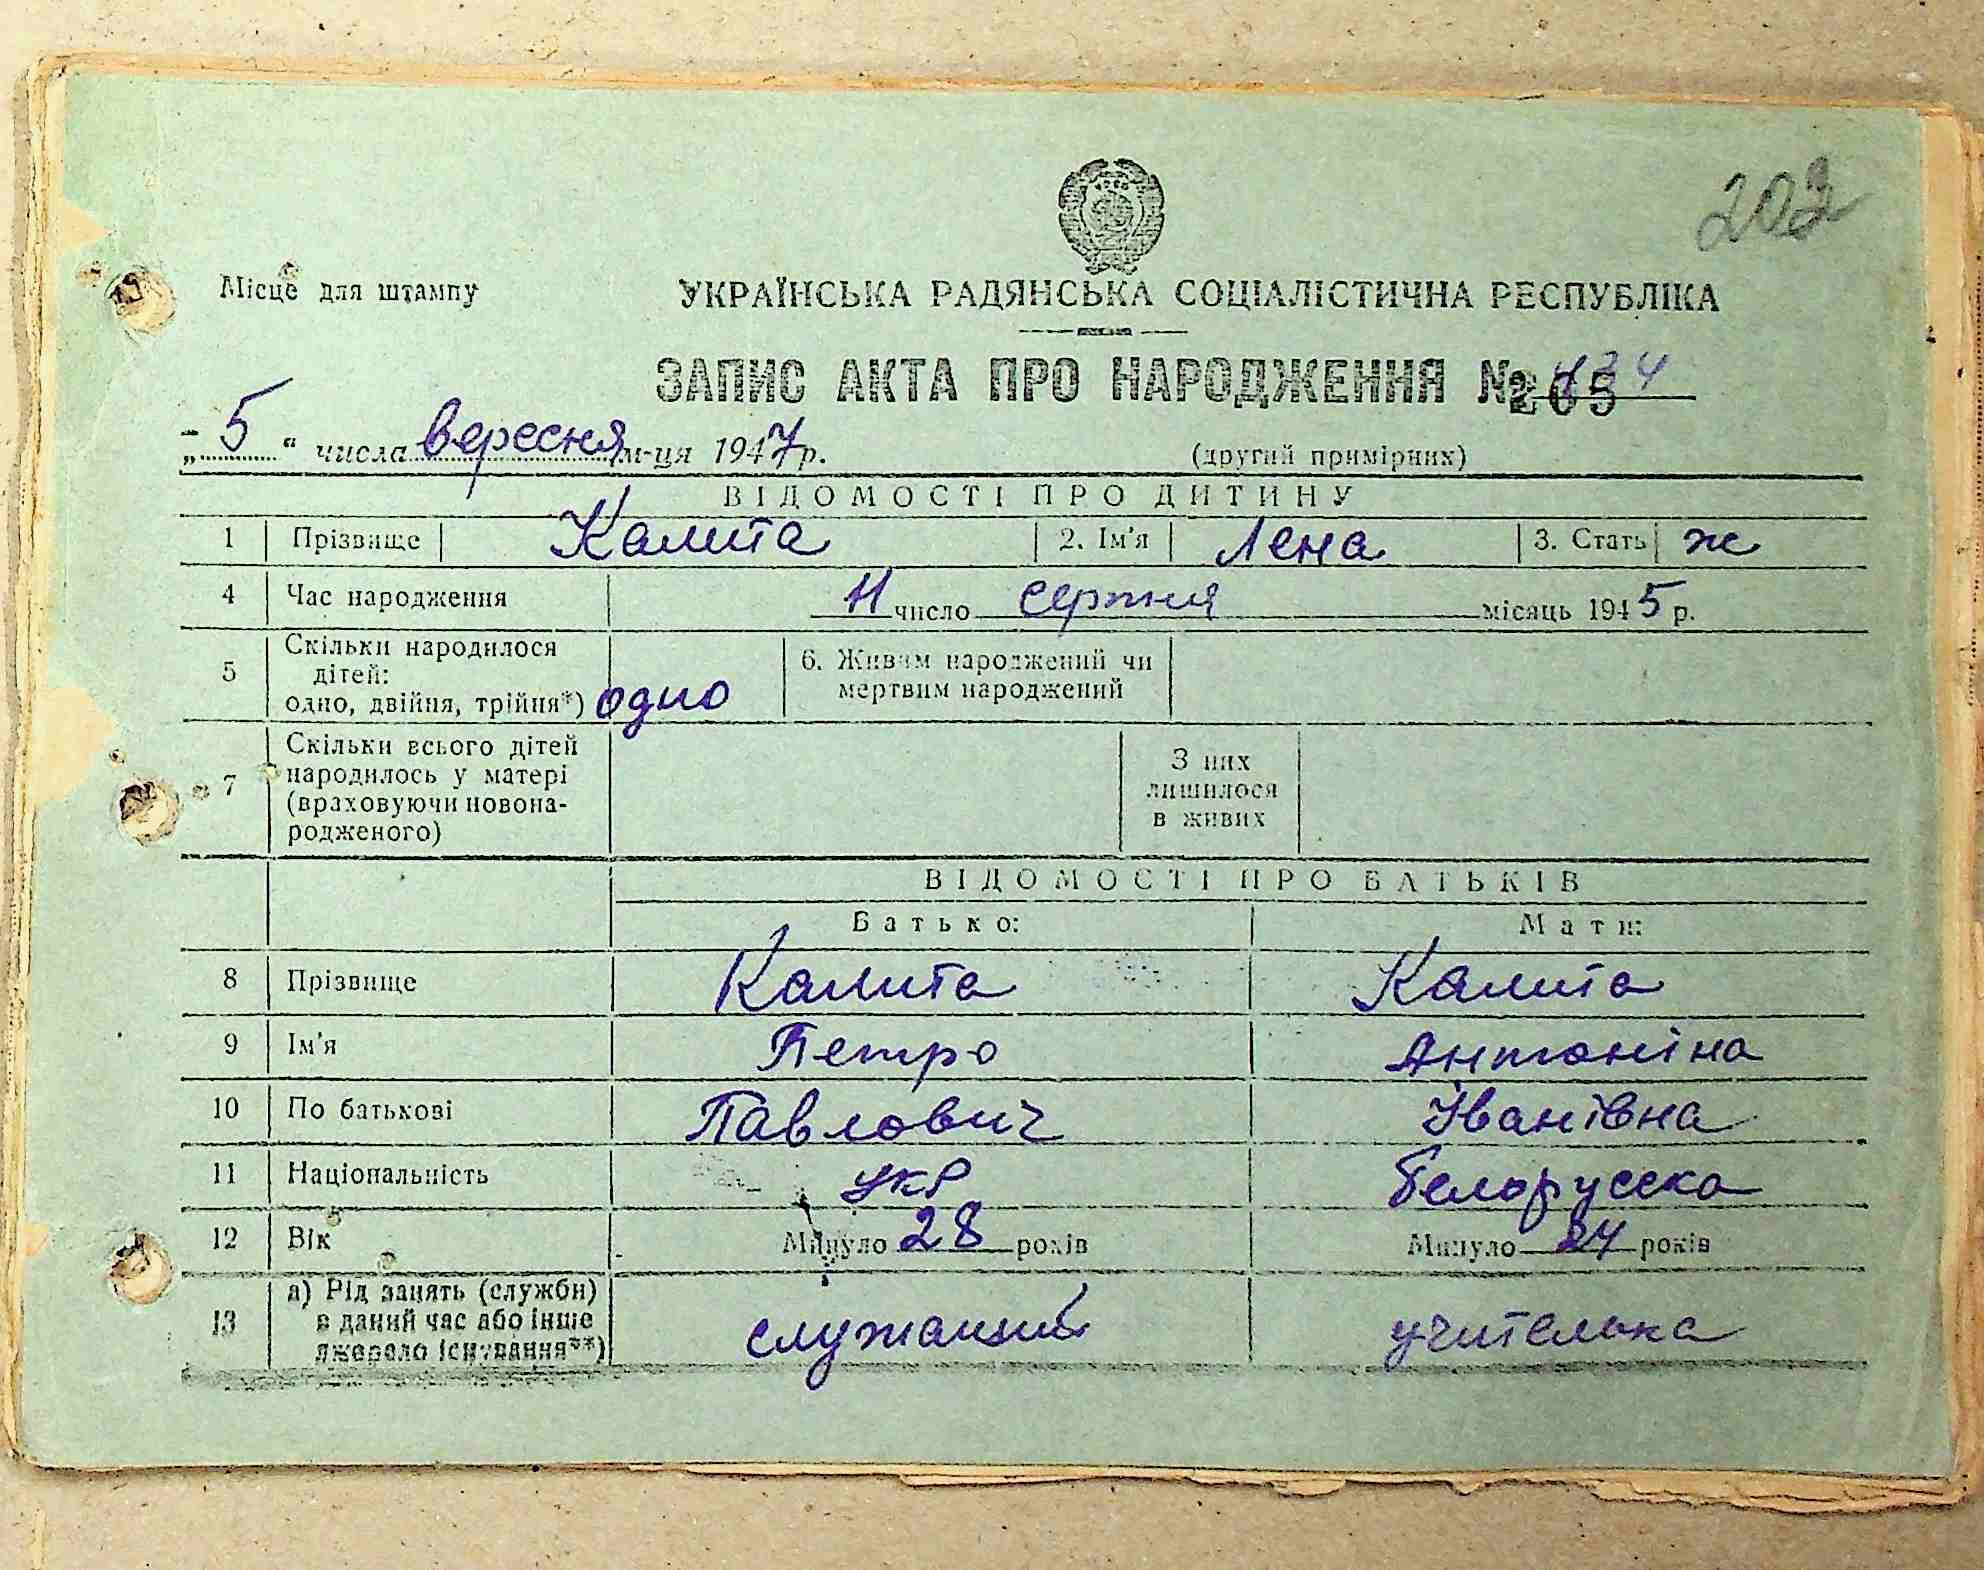 202
Місце для штампу
УКРАЇНСЬКА РАДЯНСЬКА СОЦІАЛІСТИЧНА РЕСПУБЛІКА
ЗАПИС АКТА ПРО НАРОДЖЕННЯ №
„5" числа вересня м-ця 1947 р.
(другий примірник)
ВІДОМОСТІ ПРО ДИТИНУ
1 Прізвище Калита 2. Ім'я Лена 3. Стать ж
4 Час народження 11 число серпня місяць 1945 р.
5 Скільки народилося дітей: одно, двійня, трійня*) одно 6. Живим народжений чи мертвим народжений
7 Скільки всього дітей народилось у матері (враховуючи новонародженого) З них лишилося в живих
ВІДОМОСТІ ПРО БАТЬКІВ
Батько: Мати:
8 Прізвище Калита Калита
9 Ім'я Петро Антоніна
10 По батькові Павлович Іванівна
11 Національність укр белоруска
12 Вік Минуло 28 років Минуло 24 років
13 а) Рід занять (служби) в даний час або інше джерело існування**) служащий учителька